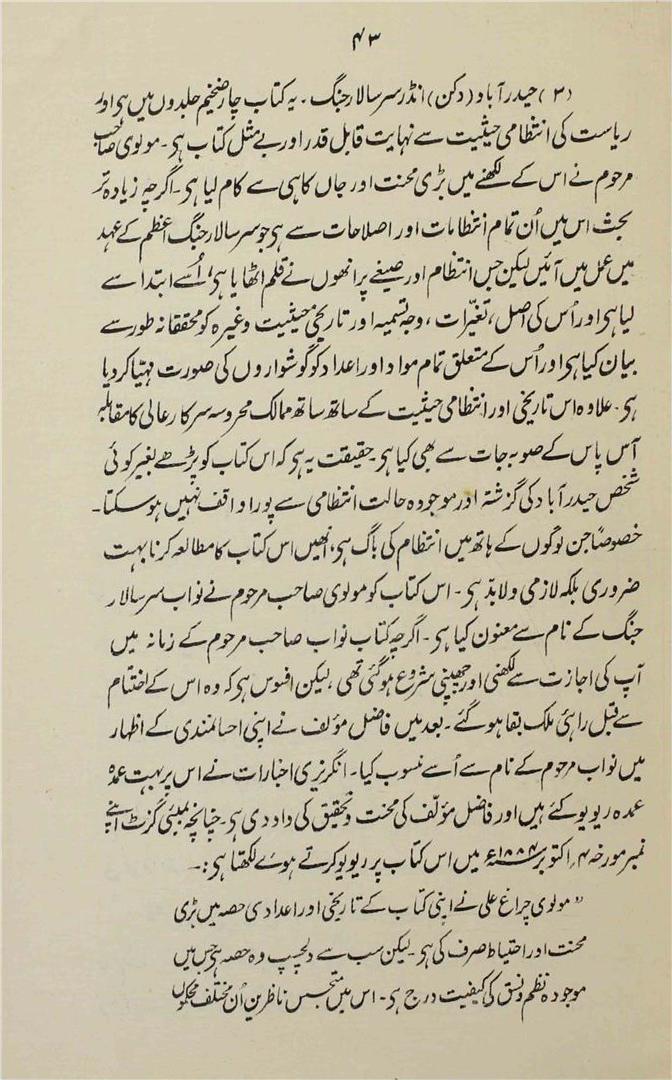 ۴۳
(۳) حیدرآباد (دکن) انڈر سر سالار جنگ ۔ یہ کتاب چار ضخیم جلدوں میں ہی اور
ریاست کی انتظامی حیثیت سے نہایت قابل قدر اور بے مثل کتاب ہی ۔ مولوی صاحب
مرحوم نے اس کے لکھنے میں بڑی محنت اور جاں کاہی سے کام لیا ہی ۔ اگرچہ زیادہ تر
بحث اس میں اُن تمام انتظامات اور اصلاحات سے ہی جو سر سالار جنگ اعظم کے عہد
میں عمل میں آئیں لیکن جس انتظام اور صیغے پر انھوں نے قلم اٹھایا ہی، اُسے ابتدا سے
لیا ہی اور اُس کی اصل، تغیّرات، وجہ تسمیہ اور تاریخی حیثیت وغیرہ کو محققانہ طور سے
بیان کیا ہی اور اُس کے متعلق تمام مواد اور اعداد کو گوشواروں کی صورت مہیّا کر دیا
ہی ۔ علاوہ اس تاریخی اور انتظامی حیثیت کے ساتھ ساتھ ممالک محروسہ سرکار عالی کا مقابلہ
آس پاس کے صوبہ جات سے بھی کیا ہی ۔ حقیقت یہ ہی کہ اس کتاب کو پڑھے بغیر کوئی
شخص حیدرآباد کی گزشتہ اور موجودہ حالت انتظامی سے پورا واقف نہیں ہو سکتا ۔
خصوصاً جن لوگوں کے ہاتھ میں انتظام کی باگ ہی، انھیں اس کتاب کا مطالعہ کرنا بہت
ضروری بلکہ لازمی و لابدّ ہی ۔ اس کتاب کو مولوی صاحب مرحوم نے نواب سر سالار
جنگ کے نام سے معنون کیا ہی ۔ اگرچہ کتاب نواب صاحب مرحوم کے زمانہ میں
آپ کی اجازت سے لکھنی اور چھپنی شروع ہو گئی تھی، لیکن افسوس ہی کہ وہ اس کے اختتام
سے قبل راہیٔ ملک بقا ہو گئے ۔ بعد میں فاضل مؤلف نے اپنی احسانمندی کے اظہار
میں نواب مرحوم کے نام سے اُسے منسوب کیا ۔ انگریزی اخبارات نے اس پر بہت عمدہ
عمدہ ریویو کئے ہیں اور فاضل مؤلّف کی محنت و تحقیق کی داد دی ہی ۔ چنانچہ بمبئی گزٹ اپنے
نمبر مورخہ ۴؍ اکتوبر ۱۸۸۴ء میں اس کتاب پر ریویو کرتے ہوئے لکھتا ہی :۔
" مولوی چراغ علی نے اپنی کتاب کے تاریخی اور اعدادی حصہ میں بڑی
محنت اور احتیاط صرف کی ہی ۔ لیکن سب سے دلچسپ وہ حصہ ہی جس میں
موجودہ نظم و نسق کی کیفیت درج ہی ۔ اس میں متجسس ناظرین اُن مختلف محکموں